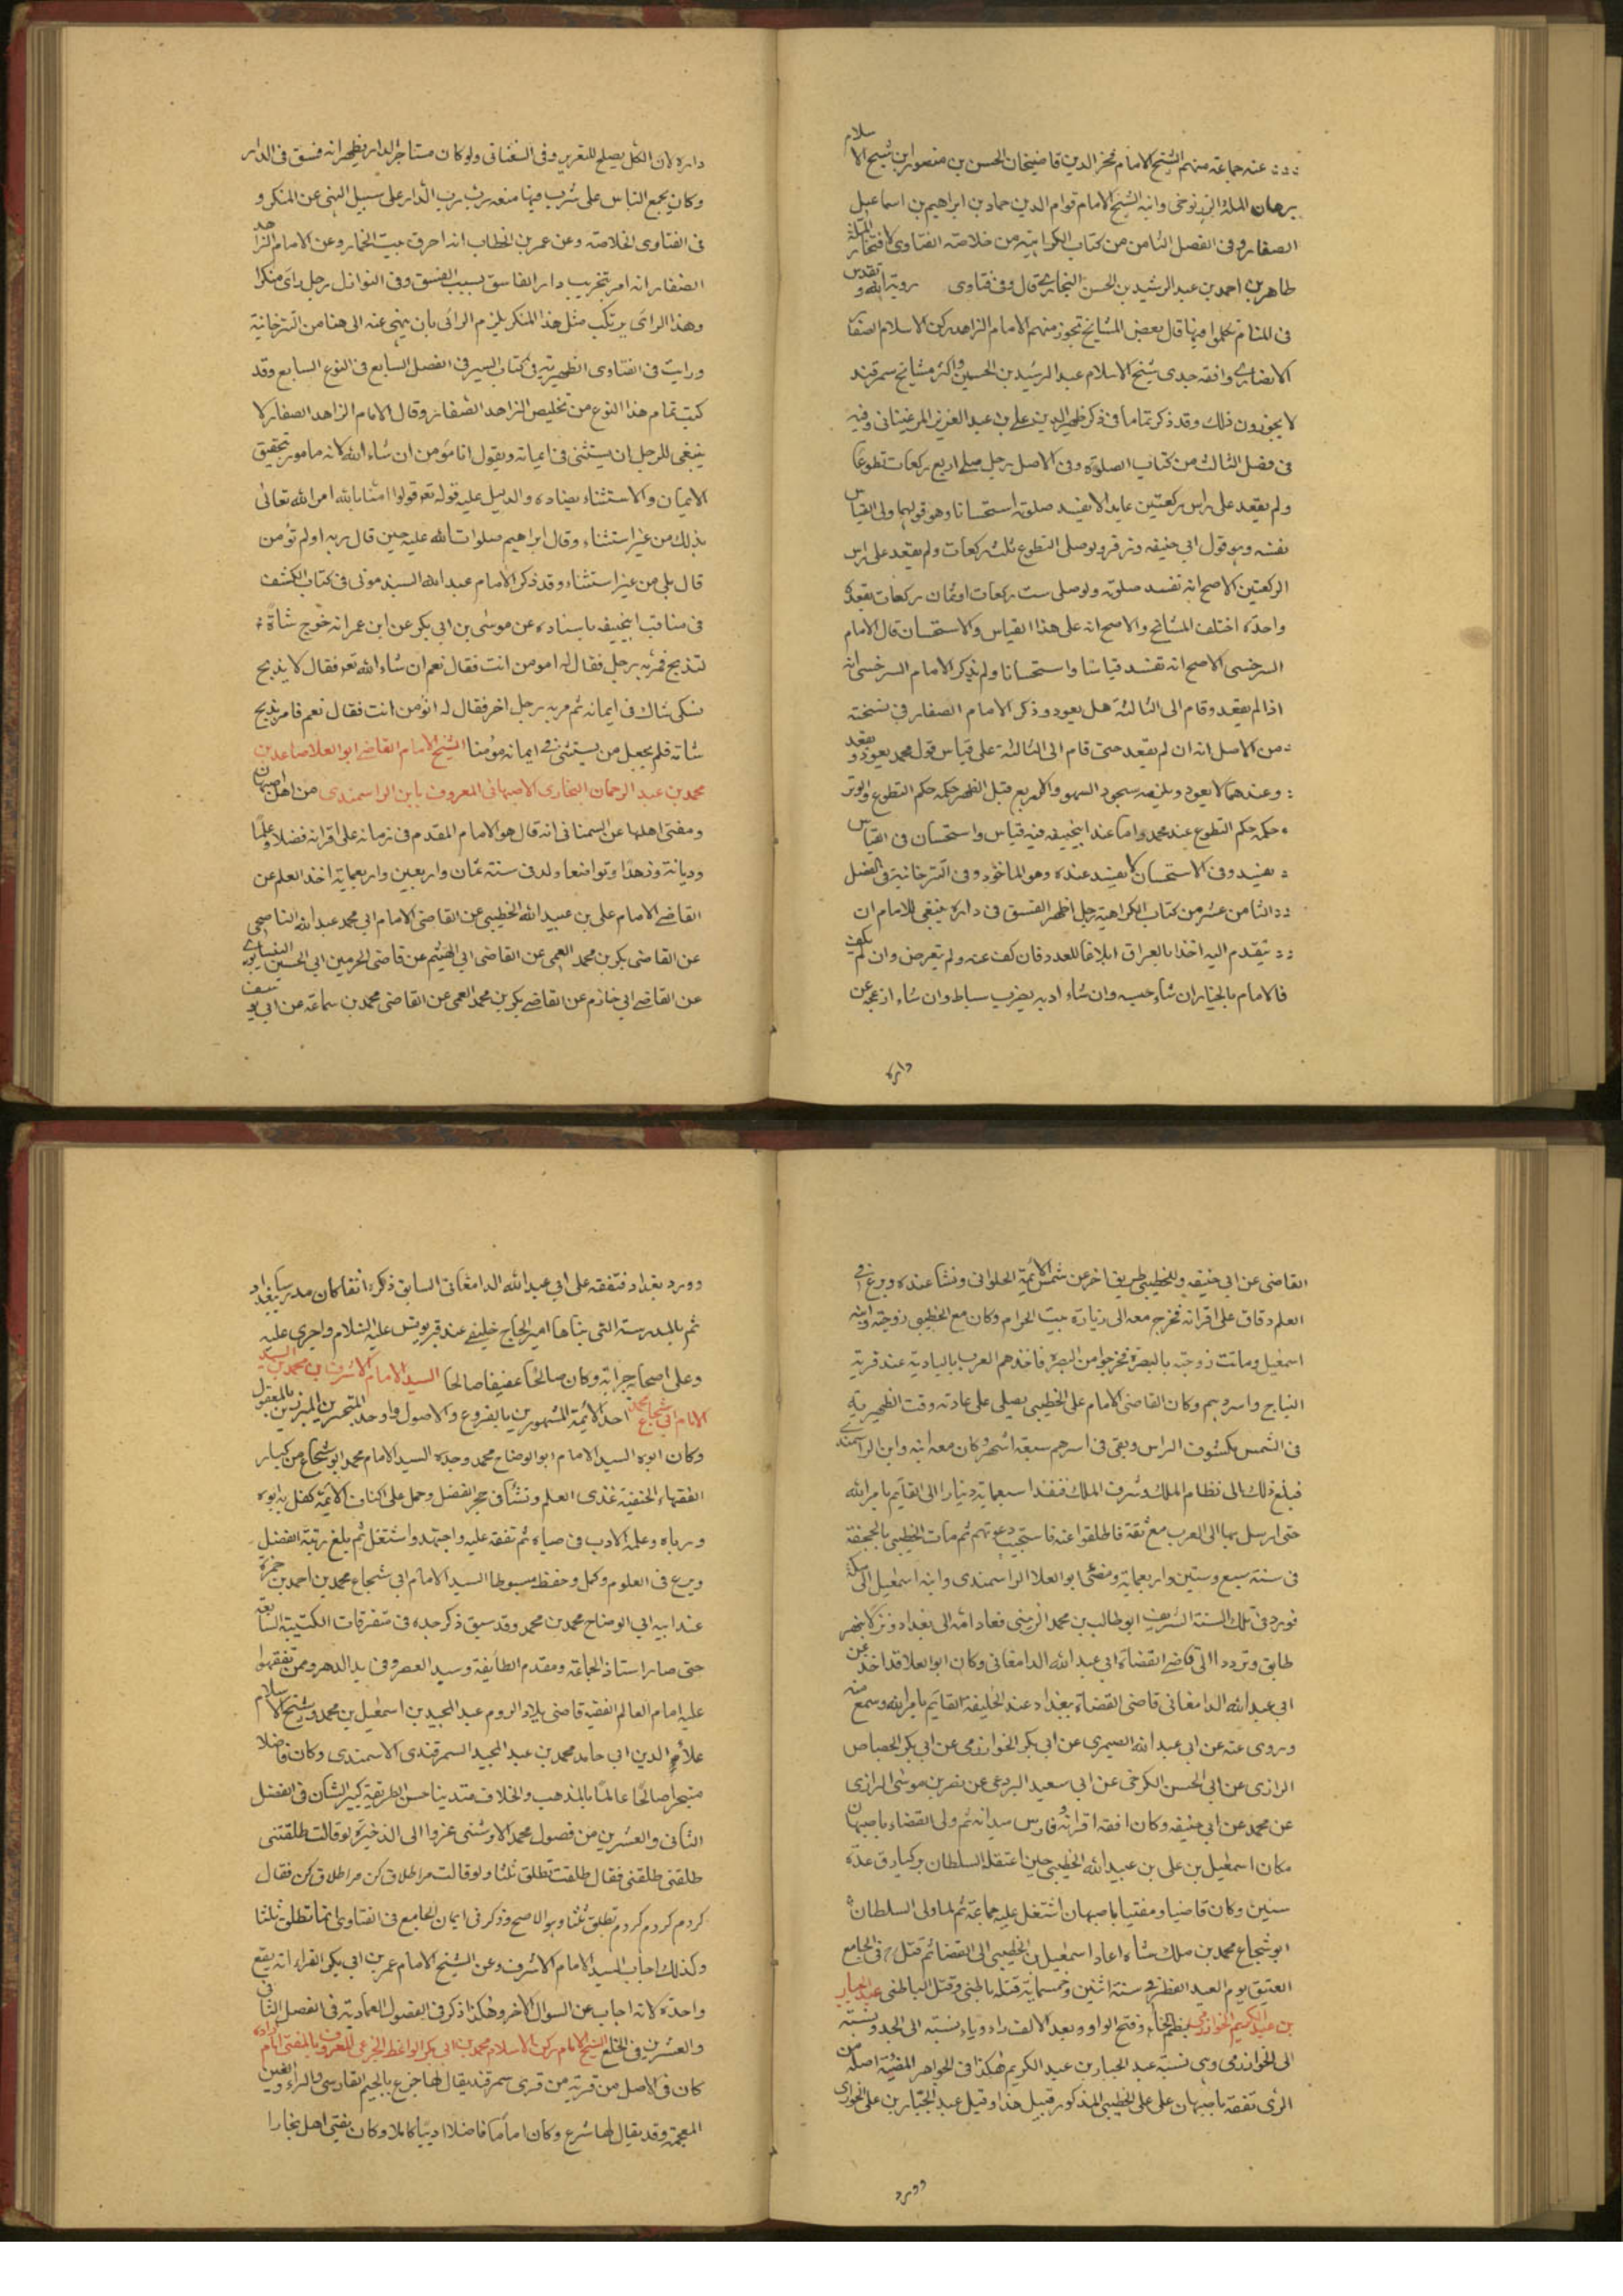 عنه جماعة منهم الشيخ الامام فخر الدين قاضيخان الحسن بن منصور ابن شيخ الاسلام
برهان الملة وابنه الشيخ الامام قوام الدين حماد بن ابراهيم بن اسماعيل
الصفار وفى الفصل الثامن من كتاب الكراهية من خلاصة الفتاوى لافتخار الملة
طاهر بن احمد بن عبد الرشيد بن الحسن البخارى قال وفى فتاوى رؤية الله تقدس و
فى المنام تكلموا فيها قال بعض المشايخ تجوز منهم الامام الزاهد ركن الاسلام الصفار
الانصارى وافقه جدى شيخ الاسلام عبد الرشيد بن الحسين واكثر مشايخ سمرقند
لا يجوزون ذلك وقد ذكر تماما فى ذكر ظهير الدين على بن عبد العزيز المرغينانى وفيه
فى فصل الثالث من كتاب الصلوة وفى الاصل رجل صلى اربع ركعات تطوعا
ولم يقعد على راس ركعتين عامدا لا تفسد صلوته استحسانا وهو قولهما وفى القياس
تفسد وهو قول ابى حنيفه وزفر ولو صلى التطوع ثلث ركعات ولم يقعد على راس
الركعتين الاصح انه تفسد صلوته ولو صلى ست ركعات او ثمان ركعات بقعدة
واحدة اختلف المشايخ والاصح انه على هذا القياس والاستحسان قال الامام
السرخسى الاصح انه تفسد قياسا واستحسانا ولم يذكر الامام السرخسى انه
اذا لم يقعد وقام الى الثالثة هل يعود وذكر الامام الصفار فى نسخته
من الاصل انه ان لم يقعد حتى قام الى الثالثة على قياس قول محمد يعود ويقعد
وعندهما لا يعود ويلزمه سجود السهو والاربع قبل الظهر حكمه حكم التطوع والوتر
حكمه حكم التطوع عند محمد واما عند ابيحنيفه فيه قياس واستحسان فى القياس
تفسد وفى الاستحسان لا تفسد عنده وهو الماخوذ وفى التترخانية فى الفصل
الثامن عشر من كتاب الكراهية رجل اظهر الفسق فى داره ينبغى للامام ان
يتقدم اليه فان كف عنه ولم يتعرض وان لم يكف
فالامام بالخيار ان شاء حبسه وان شاء ادبه بضرب سياط وان شاء ازعجه عن
داره
داره لان الكل يصلح للتعزير وفى السغناقى ولو كان مستاجر الدار يظهر انه فسق فى الدار
وكان يجمع الناس على شرب فيها منعه رب الدار على سبيل النهى عن المنكر و
فى الفتاوى الخلاصة وعن عمر بن الخطاب انه احرق بيت الخمار وعن الامام الزاهد
الصفار انه امر بتخريب دار الفاسق بسبب الفسق وفى النوازل رجل راى منكرا
وهذا الرائى يرتكب مثل هذا المنكر يلزم الرائى بان ينهى عنه الى هنا من التترخانية
ورايت فى الفتاوى الظهيرية فى كتاب السير فى الفصل السابع فى النوع السابع وقد
كتبت تمام هذا النوع من تخليص الزاهد الصفار وقال الامام الزاهد الصفار لا
ينبغى للرجل ان يستثنى فى ايمانه ويقول انا مؤمن ان شاء الله لانه مامور بتحقيق
الايمان والاستثناء يضاده والدليل عليه قوله تعو قولوا امنا بالله امر الله تعالى
بذلك من غير استثناء وقال ابراهيم صلوات الله عليه حين قال ربه اولم تؤمن
قال بلى من غير استثناء وقد ذكر الامام عبد الله السيد مونى فى كتاب الكشف
فى مناقب ابيحنيفه باسناده عن موسى بن ابى بكر عن ابن عمر انه خرج شاة
لتذبح فمر به رجل فقال له امومن انت فقال نعم ان شاء الله تعو فقال لا يذبح
نسكى شاك فى ايمانه ثم مر به رجل اخر فقال له اتؤمن انت فقال نعم فامر بذبح
شاته فلم يجعل من يستثنى فى ايمانه مؤمنا الشيخ الامام القاضى ابو العلا صاعد بن
محمد بن عبد الرحمان البخارى الاصبهانى المعروف بابن الراسمندى من اهل اصبهان
ومفتى اهلها عن السمنانى انه قال هو الامام المقدم فى زمانه على اقرانه فضلا وعلما
وديانة وزهدا وتواضعا ولد فى سنة ثمان واربعين واربعماية اخذ العلم عن
القاضى الامام على بن عبيد الله الخطيبى عن القاضى الامام ابى محمد عبد الله الناصحى
عن القاضى بكر بن محمد العمى عن القاضى ابى الهيثم عن قاضى الحرمين ابى الحسين النيسابورى
عن القاضى ابى خازم عن القاضى بكر بن محمد العمى عن القاضى محمد بن سماعة عن ابى يوسف
القاضى عن ابى حنيفه وللخطيبى طريق اخر عن شمس الائمة الحلوانى ونشا عنده وبرع فى
العلم وفاق على اقرانه فخرج معه الى زيارة بيت الحرام وكان مع الخطيبى زوجته وابنه
اسمعيل وماتت زوجته بالبصرة فخرجوا من البصرة فاخذهم العرب بالبادية عند قرية
النباج واسروهم وكان القاضى الامام على الخطيبى يصلى على عادته وقت الظهيرية
فى الشمس مكشوف الراس وبقى فى اسرهم سبعة اشهر وكان معه ابنه وابن الراسمندى
فبلغ ذلك الى نظام الملك وشرف الملك فنفذا سبعماية دينار الى القايم بامر الله
حتى ارسل بها الى العرب مع ثقة فاطلقوا عنه فاستجيب دعوتهم ثم مات الخطيبى بالجحفة
فى سنة سبع وستين واربعماية ومضى ابو العلا الراسمندى وابنه اسمعيل الى مكة
فورد فى تلك السنة الشريف ابو طالب بن محمد الزينبى فعاد امه الى بغداد ونزلا بنهر
طابق وتردد الى قاضى القضاة ابى عبد الله الدامغانى وكان ابو العلا قد اخذ عن
ابى عبد الله الدامغانى قاضى القضاة ببغداد عند الخليفة القايم بامر الله وسمع منه
وروى عنه عن ابى عبد الله الصيمرى عن ابى بكر الخوارزمى عن ابى بكر الجصاص
الرازى عن ابى الحسن الكرخى عن ابى سعيد البردعى عن نصر بن موسى الرازى
عن محمد عن ابى حنيفه وكان افقه اقرانه وفارس ميدانه ثم ولى القضاء باصبهان
مكان اسمعيل بن على بن عبيد الله الخطيبى حين اعتقله السلطان بركيارق عدة
سنين وكان قاضيا ومفتيا باصبهان اشتغل عليه جماعة ثم لما ولى السلطان
ابو شجاع محمد بن ملك شاه اعاد اسمعيل بن الخطيبى الى القضا ثم قتل فى الجامع
العتيق يوم العيد الفطر فى سنة اثنين وخمسماية قتله باطنى وقتل الباطنى عبد الجبار
بن عبد الكريم الخوارى بضم الخاء وفتح الواو وبعد الالف راء وياء نسبة الى الجد ونسبته
الى الخوارزمى وهى نسبة عبد الجبار بن عبد الكريم هكذا فى الجواهر المضيئة اصله من
الرى تفقه باصبهان على على الخطيبى المذكور قبيل هذا وقيل عبد الجبار بن على الخوارى
وورد
وورد بغداد فتفقه على ابى عبد الله الدامغانى السابق ذكره انفا كان مدرسا ببغداد
ثم بالمدرسة التى بناها امير الحاج عند قبر يونس عليه السلام واجرى عليه
وعلى اصحابه جراية وكان صالحا عفيفا صالحا السيد الامام الاشرف بن محمد بن السيد
الامام ابى شجاع محمد احد الائمة المشهورين بالفروع والاصول واوحد المتبحرين المبرزين بالمعقول
وكان ابوه السيد الامام ابو الوضاح محمد وجده السيد الامام محمد ابو شجاع من كبار
الفقهاء الحنفية غذى العلم ونشأ فى حجر الفضل وحمل على اكتاف الائمة كفل به ابوه
ورباه وعلمه الادب فى صباه ثم تفقه عليه واجتهد واشتغل ثم بلغ رتبة الفضل
وبرع فى العلوم وكمل وحفظ مبسوطا السيد الامام ابى شجاع محمد بن احمد بن حمزة
عند ابيه ابى الوضاح محمد بن محمد وقد سبق ذكر جده فى متفرقات الكتيبة السابقة
حتى صار استاذ الجماعة ومقدم الطايفة وسيد العصر وفريد الدهر وممن تفقهوا
عليه امام العالم الفقيه قاضى بلاد الروم عبد المجيد بن اسمعيل بن محمد وشيخ الاسلام
علاء الدين ابى حامد محمد بن عبد المجيد السمرقندى الاسمندى وكان فاضلا
متبحرا صالحا عالما بالمذهب والخلاف متدينا حسن الطريقة كبير الشان فى الفضل
الثانى والعشرين من فصول محمد الاسروشنى عزوا الى الذخيرة لو قالت طلقتنى
طلقنى طلقنى فقال طلقت تطلق ثلثا ولو قالت مرا طلاق كن مرا طلاق كن فقال
كردم كردم كردم تطلق ثلثا وهو الاصح وذكر فى ايمان الجامع فى الفتاوى انها تطلق ثلثا
وكذلك اجاب السيد الامام الاشرف وعن الشيخ الامام عمر بن ابى بكر القراء انه يقع
واحدة لانه اجاب عن السوال الاخر وهكذا ذكر فى الفصول العمادية فى الفصل الثانى
والعشرين فى الخلع الشيخ الامام ركن الاسلام محمد بن ابى بكر الواعظ الجرغى المعروف بالمفتى امام زاده
كان فى الاصل من قرية من قرى سمرقند يقال لها جرغ بالجيم الفارسى والراء والغين
المعجمة وقد يقال لها شرغ وكان اماما فاضلا اديبا كاملا وكان يفتى اهل بخارا